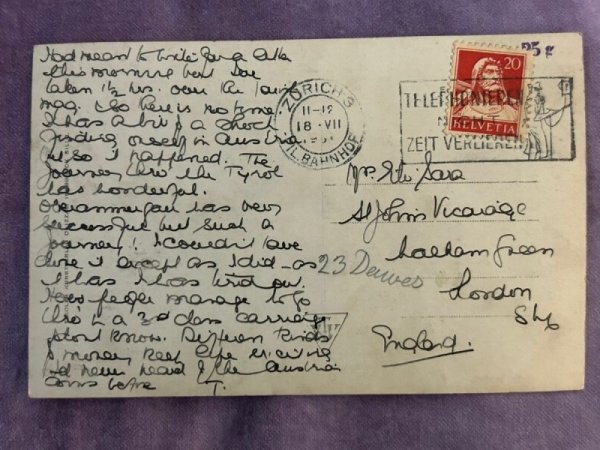 Had meant to write you a letter
this morning but have
taken 1½ hrs. over the
mag. So there is no time.
I was a bit of a shock
finding myself in Austria
also it happened. The
journey thro' the Tyrol
was wonderful.
Oberammergau was very
successful but such a
journey! I couldn't have
done it except as I did - as
it was I was tired out.
How people manage to go
thro' in a 3rd class carriage
I don't know. Different kinds
of money keep one
I'd never heard of the Austrian
coins before T.
ZÜRICH 3
11-12
18 · VII
FIL. BAHNHOF
TELEPHONIEREN
NICHT
ZEIT VERLIEREN
20
HELVETIA
25
St John's Vicarage
Walham Green
London
SW6
England.
23 Dawes